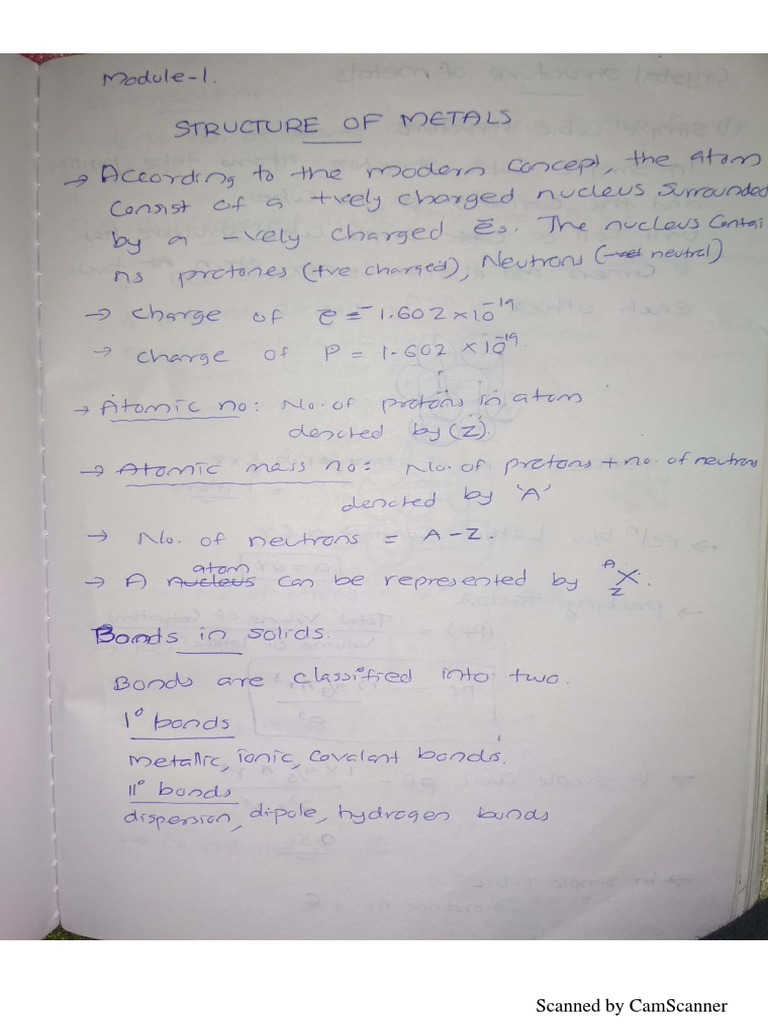 Module-1.
STRUCTURE OF METALS
→ According to the modern concept, the atom
consist of a +vely charged nucleus surrounded
by a -vely charged e̅s. The nucleus contai
ns protones (+ve charged), Neutrons (neutral)
→ charge of e̅ = -1.602 × 10⁻¹⁹
→ charge of P = 1.602 × 10⁻¹⁹.
→ Atomic no: No. of protons in atom
denoted by (Z).
→ Atomic mass no: No. of protons + no. of neutrons
denoted by 'A'
→ No. of neutrons = A - Z.
atom
→ A nucleus can be represented by ᴬ_Z X.
Bonds in solids.
Bonds are classified into two.
I° bonds
metallic, ionic, covalant bonds.
II° bonds
dispersion, di-pole, hydrogen bonds
Scanned by CamScanner